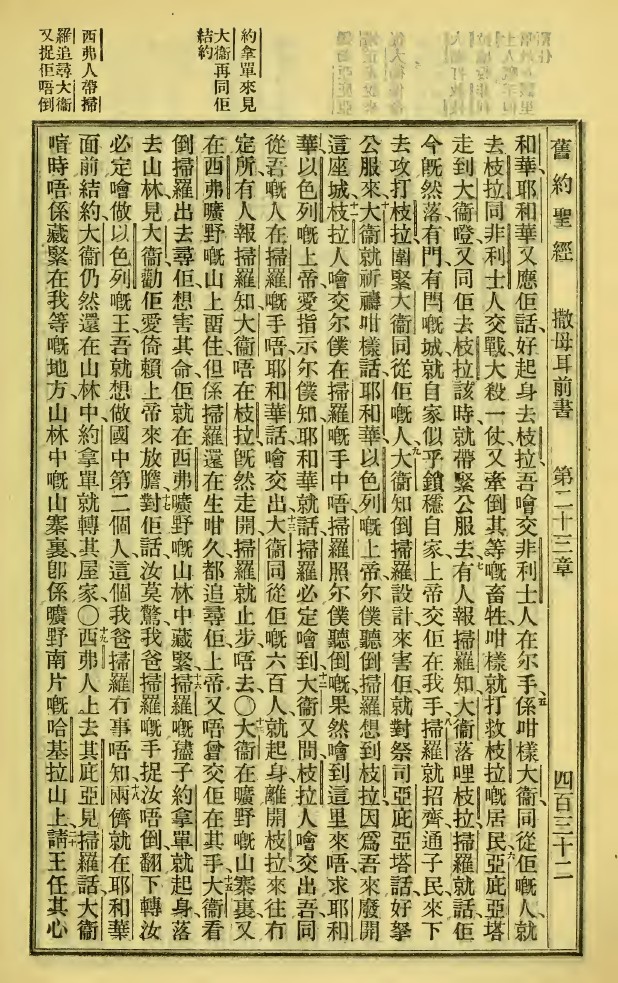 舊約聖經 撒母耳前書 第二十三章 四百三十二
約拿單來見
大衞再同佢
結約
西弗人帶掃
羅追尋大衞
又捉佢唔倒
和華、耶和華又應佢話、好起身去枝拉、吾噲交非利士人在尔手、五係咁樣大衞同從佢嘅人、就
去枝拉同非利士人交戰、大殺一仗、又牽倒其等嘅畜牲、咁樣就打救枝拉嘅居民、六亞庇亞塔
走到大衞嗌、又同佢去枝拉、該時就帶緊公服去、七有人報掃羅知、大衞落哩枝拉、掃羅就話、佢
今既然落有門有閂嘅城、就自家似乎鎖穩自家、上帝交佢在我手、八掃羅就招齊通子民來、下
去攻打枝拉、圍緊大衞同從佢嘅人、九大衞知倒掃羅設計來害佢、就對祭司亞庇亞塔話、好拏
公服來、十大衞就祈禱咁樣話、耶和華以色列嘅上帝、尔僕聽倒掃羅想到枝拉、因爲吾來廢開
這座城、十一枝拉人噲交尔僕在掃羅嘅手中唔、掃羅照尔僕聽倒嘅、果然噲到這里來唔、求耶和
華以色列嘅上帝愛指示尔僕知、耶和華就話、掃羅必定噲到、十二大衞又問枝拉人噲交出吾同
從吾嘅人在掃羅嘅手唔、耶和華話、噲交出、十三大衞同從佢嘅六百人、就起身離開枝拉、來往冇
定所、有人報掃羅知、大衞唔在枝拉、既然走開、掃羅就止步唔去、〇十四大衞在曠野嘅山寨裏、又
在西弗曠野嘅山上畱住、但係掃羅還在生咁久、都追尋佢、上帝又唔曾交佢在其手、十五大衞看
倒掃羅出去尋佢、想害其命、佢就在西弗曠野嘅山林中藏緊、十六掃羅嘅孻子約拿單就起身落
去山林見大衞、勸佢愛倚賴上帝來放膽、十七對佢話、汝莫驚、我爸掃羅嘅手捉汝唔倒、翻下轉汝
必定噲做以色列嘅王、吾就想做國中第二個人、這個我爸掃羅冇事唔知、十八兩儕就在耶和華
面前結約、大衞仍然還在山林中、約拿單就轉其屋家、〇十九西弗人上去其庇亞見掃羅話、大衞
喑時唔係藏緊在我等嘅地方、山林中嘅山寨裏、卽係曠野南片嘅哈基拉山上、二十請王任其心